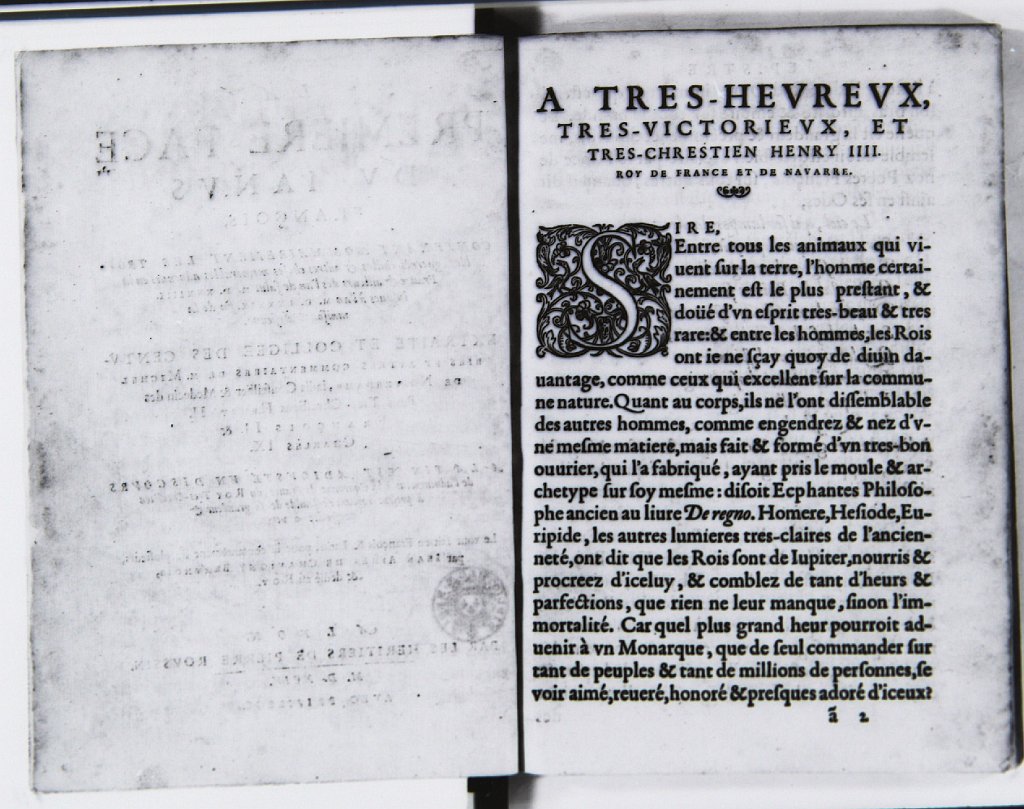 A TRES-HEVREVX,
TRES-VICTORIEVX, ET
TRES-CHRESTIEN HENRY IIII.
ROY DE FRANCE ET DE NAVARRE.
SIRE,
Entre tous les animaux qui vi-
uent ſur la terre, l'homme certai-
nement eſt le plus preſtant, &
doüé d'vn eſprit tres-beau & tres
rare:& entre les hommes,les Rois
ont ie ne ſçay quoy de diuin da-
uantage, comme ceux qui excellent ſur la commu-
ne nature.Quant au corps,ils ne l'ont diſſemblable
des autres hommes, comme engendrez & nez d'v-
ne meſme matiere,mais fait & formé d'vn tres-bon
ouurier,qui l'a fabriqué, ayant pris le moule & ar-
chetype ſur ſoy meſme: diſoit Ecphantes Philoſo-
phe ancien au liure De regno. Homere,Heſiode,Eu-
ripide, les autres lumieres tres-claires de l'ancien-
neté,ont dit que les Rois ſont de Iupiter,nourris &
procreez d'iceluy, & comblez de tant d'heurs &
parfections, que rien ne leur manque, ſinon l'im-
mortalité. Car quel plus grand heur pourroit ad-
uenir à vn Monarque, que de ſeul commander ſur
tant de peuples & tant de millions de perſonnes,ſe
voir aimé,reueré,honoré & preſques adoré d'iceux?
ã 2
PREMIERE FACE
DV IANVS
FRANÇOIS,
EXTRAITE ET COLLIGEE DES CENTV-
PAR LES HERITIERS DE PIERRE ROVSSIN.